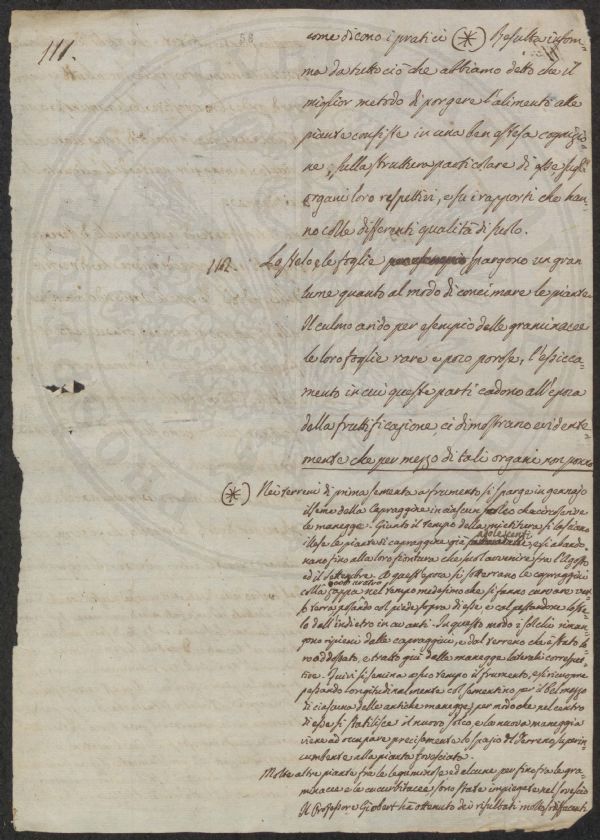 111.
58
come dicono i pratici (*) Resulta insom=
ma da tutto ciò che abbiamo detto che il
miglior metodo di porgere l'alimento alle
piante consiste in una ben estesa cognizio=
ne, sulla struttura particolare di esse sugli
organi loro respettivi, e su i rapporti che han=
no colle differenti qualità di suolo.
112. Lo stelo e le foglie spargono un gran
lume quanto al modo di concimare le piante.
Il culmo arido per esempio delle graminacee
le loro foglie rare e poco porose, l'essicca=
mento in cui queste parti cadono all'epoca
della fruttificazione, ci dimostrano evidente=
mente che per mezzo di tali organi non ponno
(*) Nei terreni di prima sementa a frumento si sparge in gennajo
il seme della Capraggine in ciascun solco che circonda
le maneggie. Giunto il tempo della mietitura si lasciano
illese le piante di capraggine già adolescenti, e si abando=
nano fino alla loro fioritura che suol avvenire fra l'Agosto
ed il Settembre. A quest'epoca si sotterrano le capraggini
colla zappa nel tempo medesimo che si fanno curvare ver=
so terra posando col piede sopra di esse e calpestandone lo ste=
lo dall'indietro in avanti. In questo modo i solchi riman=
gono ripieni dalle capraggini, e dal terreno che è stato lo=
ro addossato, e tratto giù dalle maneggie laterali correspet=
tive. Quivi si semina a suo tempo il frumento, e si ricuopre
passando longitudinalmente col sementino per il bel mezzo
di ciascuna delle antiche maneggie, per modo che nel centro
di esse si stabilisce il nuovo solco, e la nuova maneggia
viene ad occupare precisamente lo spazio del Terreno superin=
cumbente alla pianta rovesciata.
Molte altre piante fra le leguminose ed alcune per fine fra le gra=
minacee e le cucurbitacee, sono state impiegate nel sovescio
Il Professore Giobert ha ottenuto dei risultati molto sodisfacenti